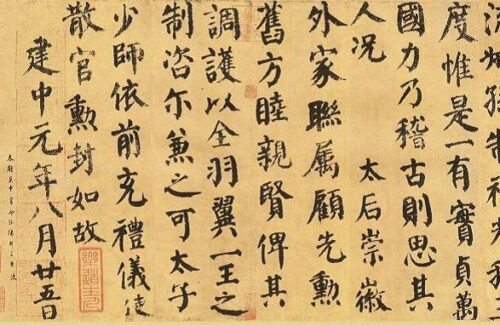 孫制禮光我王
度惟是一有實貞萬
國力乃稽古則思其
人况 太后崇徽
外家聯属顧先勳
舊方睦親賢俾其
調護以全羽翼一王之
制咨尓兼之可太子
少師依前充禮儀使
散官勳封如故
建中元年八月廿五日